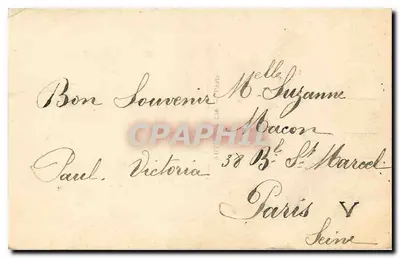 Bon Souvenir
Paul. Victoria
Melle Suzanne
Macon
38 Bd St Marcel
Paris V
Seine
CPAPHIL.COM